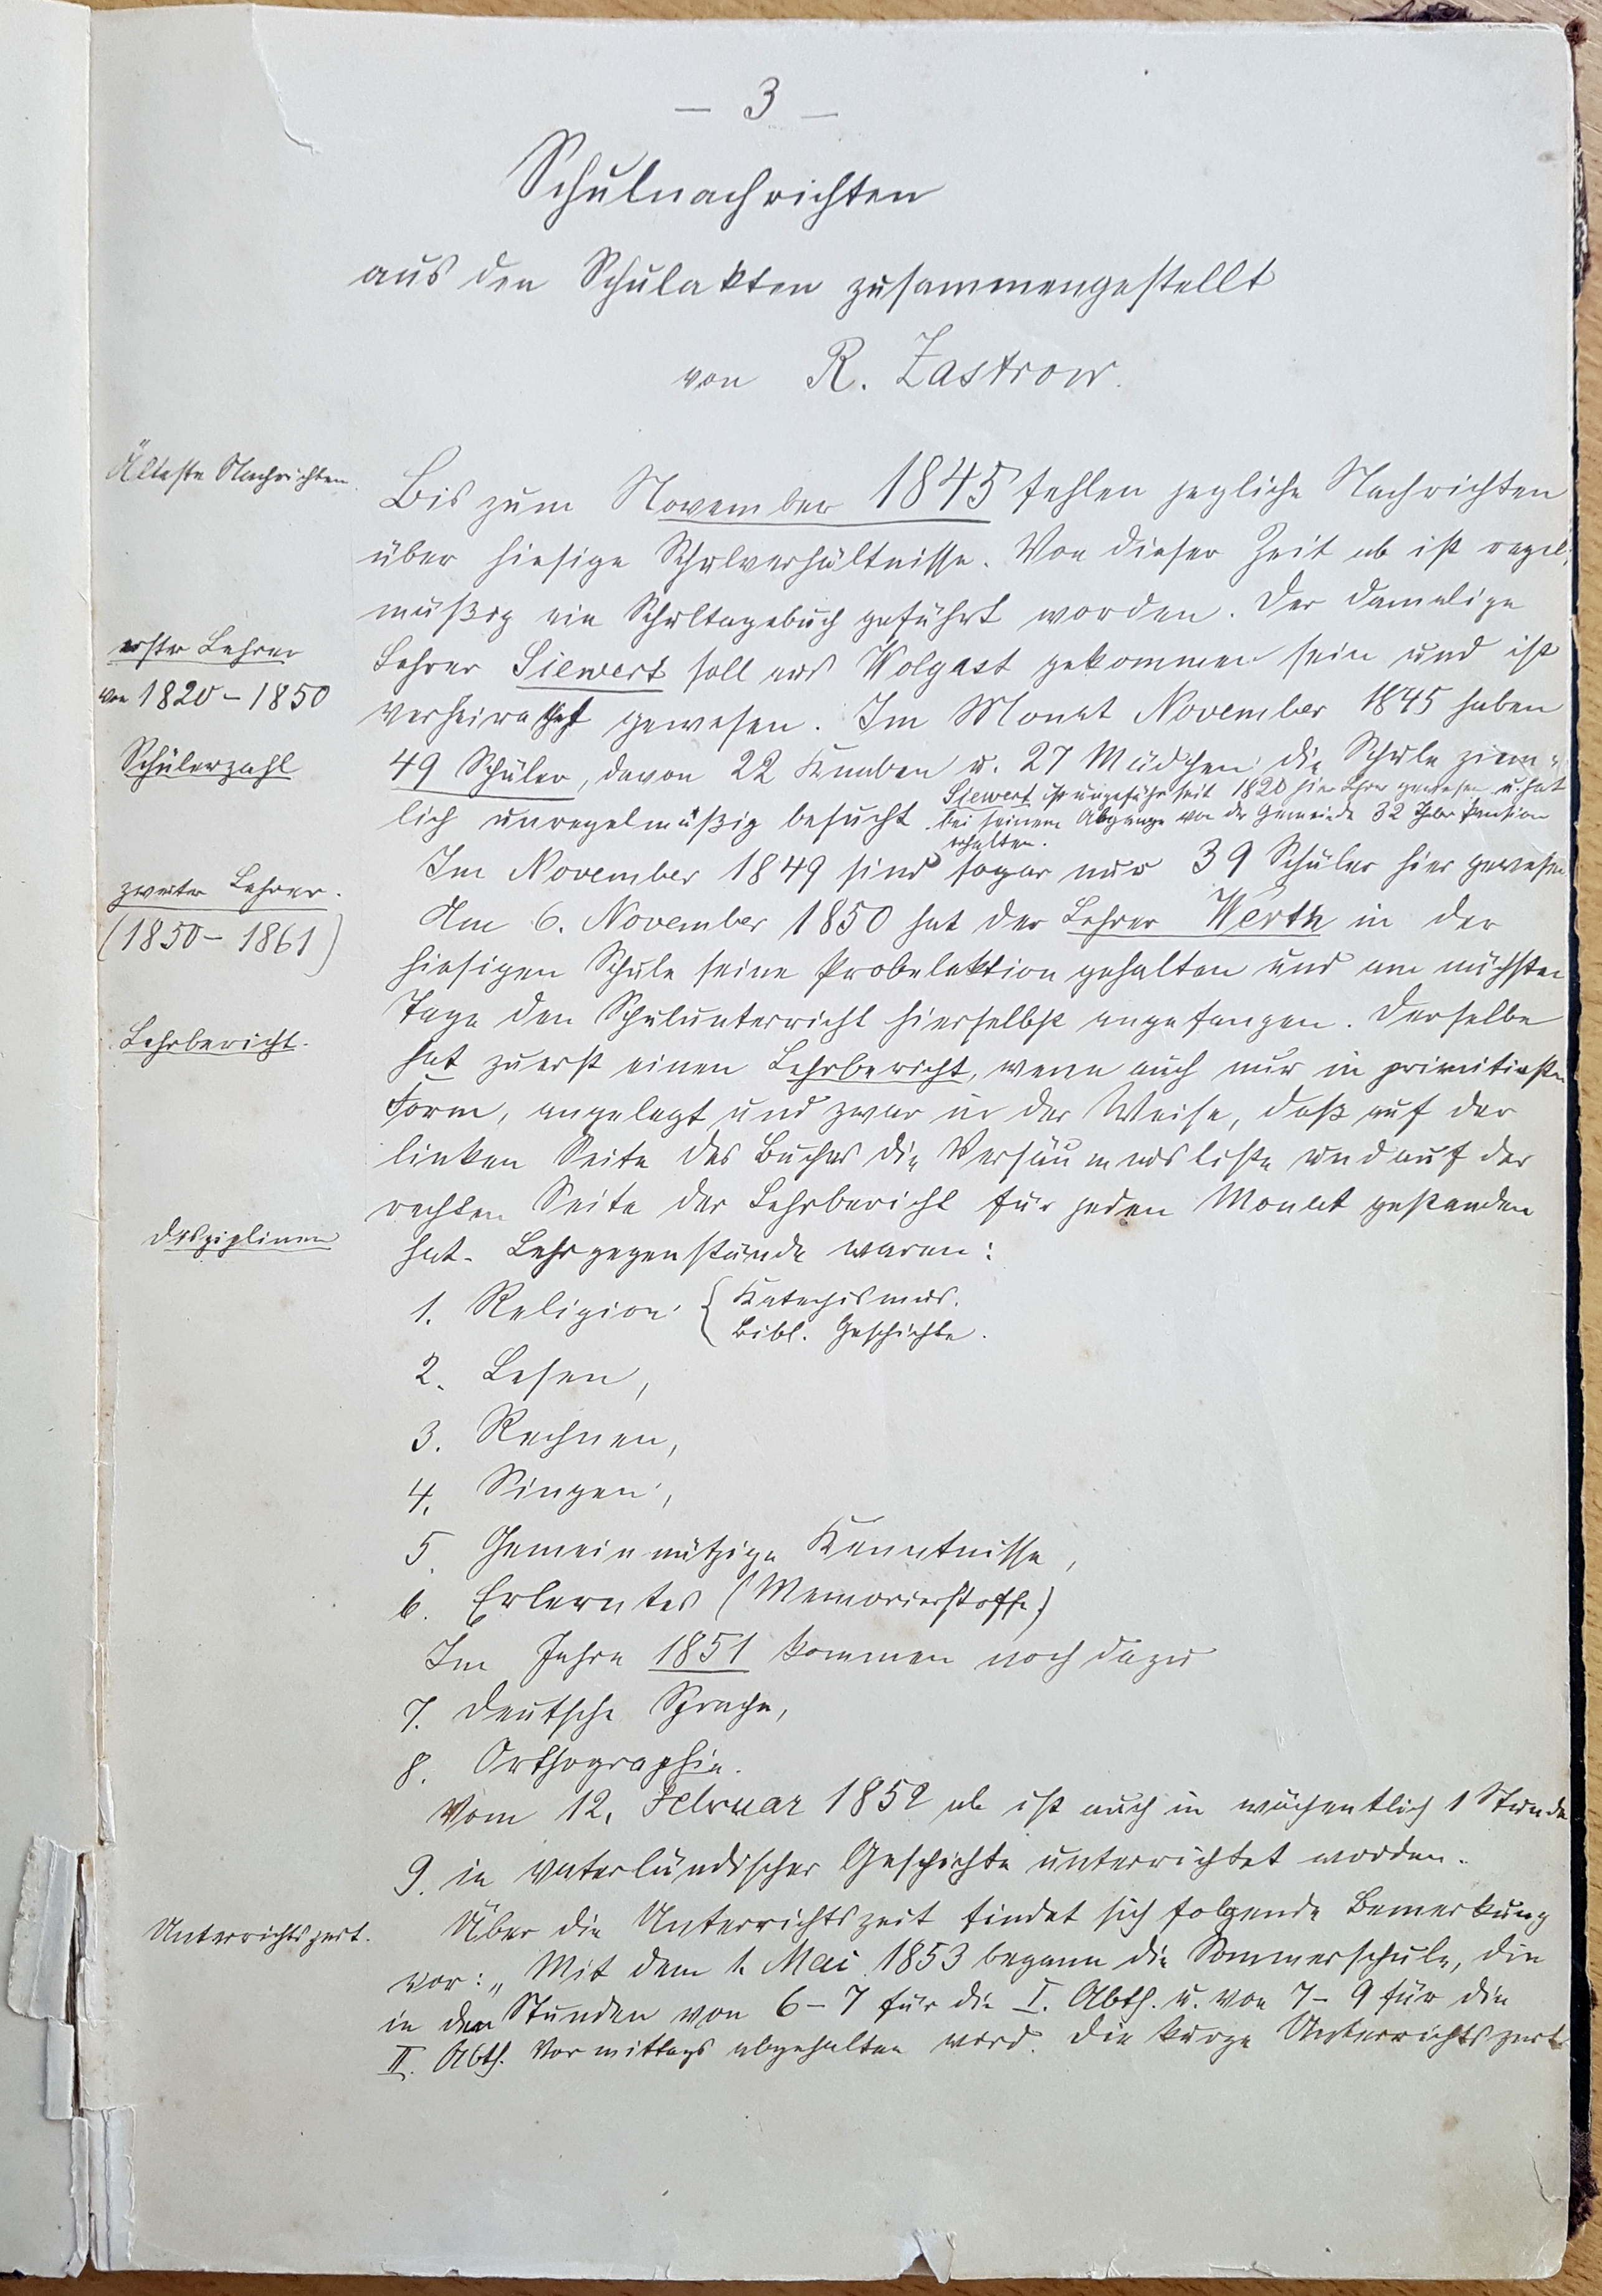 — 3 —
Schulnachrichten
aus den Schulakten zusammengestellt
von R. Zastrow.
Älteste Nachrichten.
Bis zum November 1845 fehlen jegliche Nachrichten
über hiesige Schulverhältnisse. Von dieser Zeit ab ist regel-
mäßig ein Schultagebuch geführt worden. Der damalige
erster Lehrer
von 1820–1850
Lehrer Siewert soll aus Wolgast gekommen sein und ist
verheirathet gewesen. Im Monat November 1845 haben
Schülerzahl
49 Schüler, davon 22 Knaben u. 27 Mädchen die Schule ziem-
lich unregelmäßig besucht.
Siewert ist ungefähr seit 1820 hier Lehrer gewesen u. hat
bei seinem Abgange von der Gemeinde 32 Thaler Pension
erhalten.
Im November 1849 sind sogar nur 39 Schüler hier gewesen
zweiter Lehrer.
(1850–1861)
Am 6. November 1850 hat der Lehrer Werth in der
hiesigen Schule seine Probelektion gehalten und am nächsten
Tage den Schulunterricht hierselbst angefangen. Derselbe
Lehrbericht.
hat zuerst einen Lehrbericht, wenn auch nur in primitivster
Form, angelegt und zwar in der Weise, daß auf der
linken Seite des Buches die Versäumnisliste und auf der
rechten Seite der Lehrbericht für jeden Monat gestanden
Disziplinen
hat. Lehrgegenstände waren:
1. Religion { Katechismus.
Bibl. Geschichte.
2. Lesen,
3. Rechnen,
4. Singen,
5. Gemeinnützige Kenntnisse,
6. Erlerntes (Memorierstoffe)
Im Jahre 1851 kommen noch dazu
7. Deutsche Sprache,
8. Orthographie.
Vom 12. Februar 1852 ab ist auch in wöchentlich 1 Stunde
9. in vaterländischer Geschichte unterrichtet worden.
Unterrichtszeit.
Über die Unterrichtszeit findet sich folgende Bemerkung
vor: „Mit dem 1. Mai 1853 begann die Sommerschule, die
in den Stunden von 6–7 für die I. Abth. u. von 7–9 für die
II. Abth. Vormittags abgehalten wird. Die kurze Unterrichtszeit